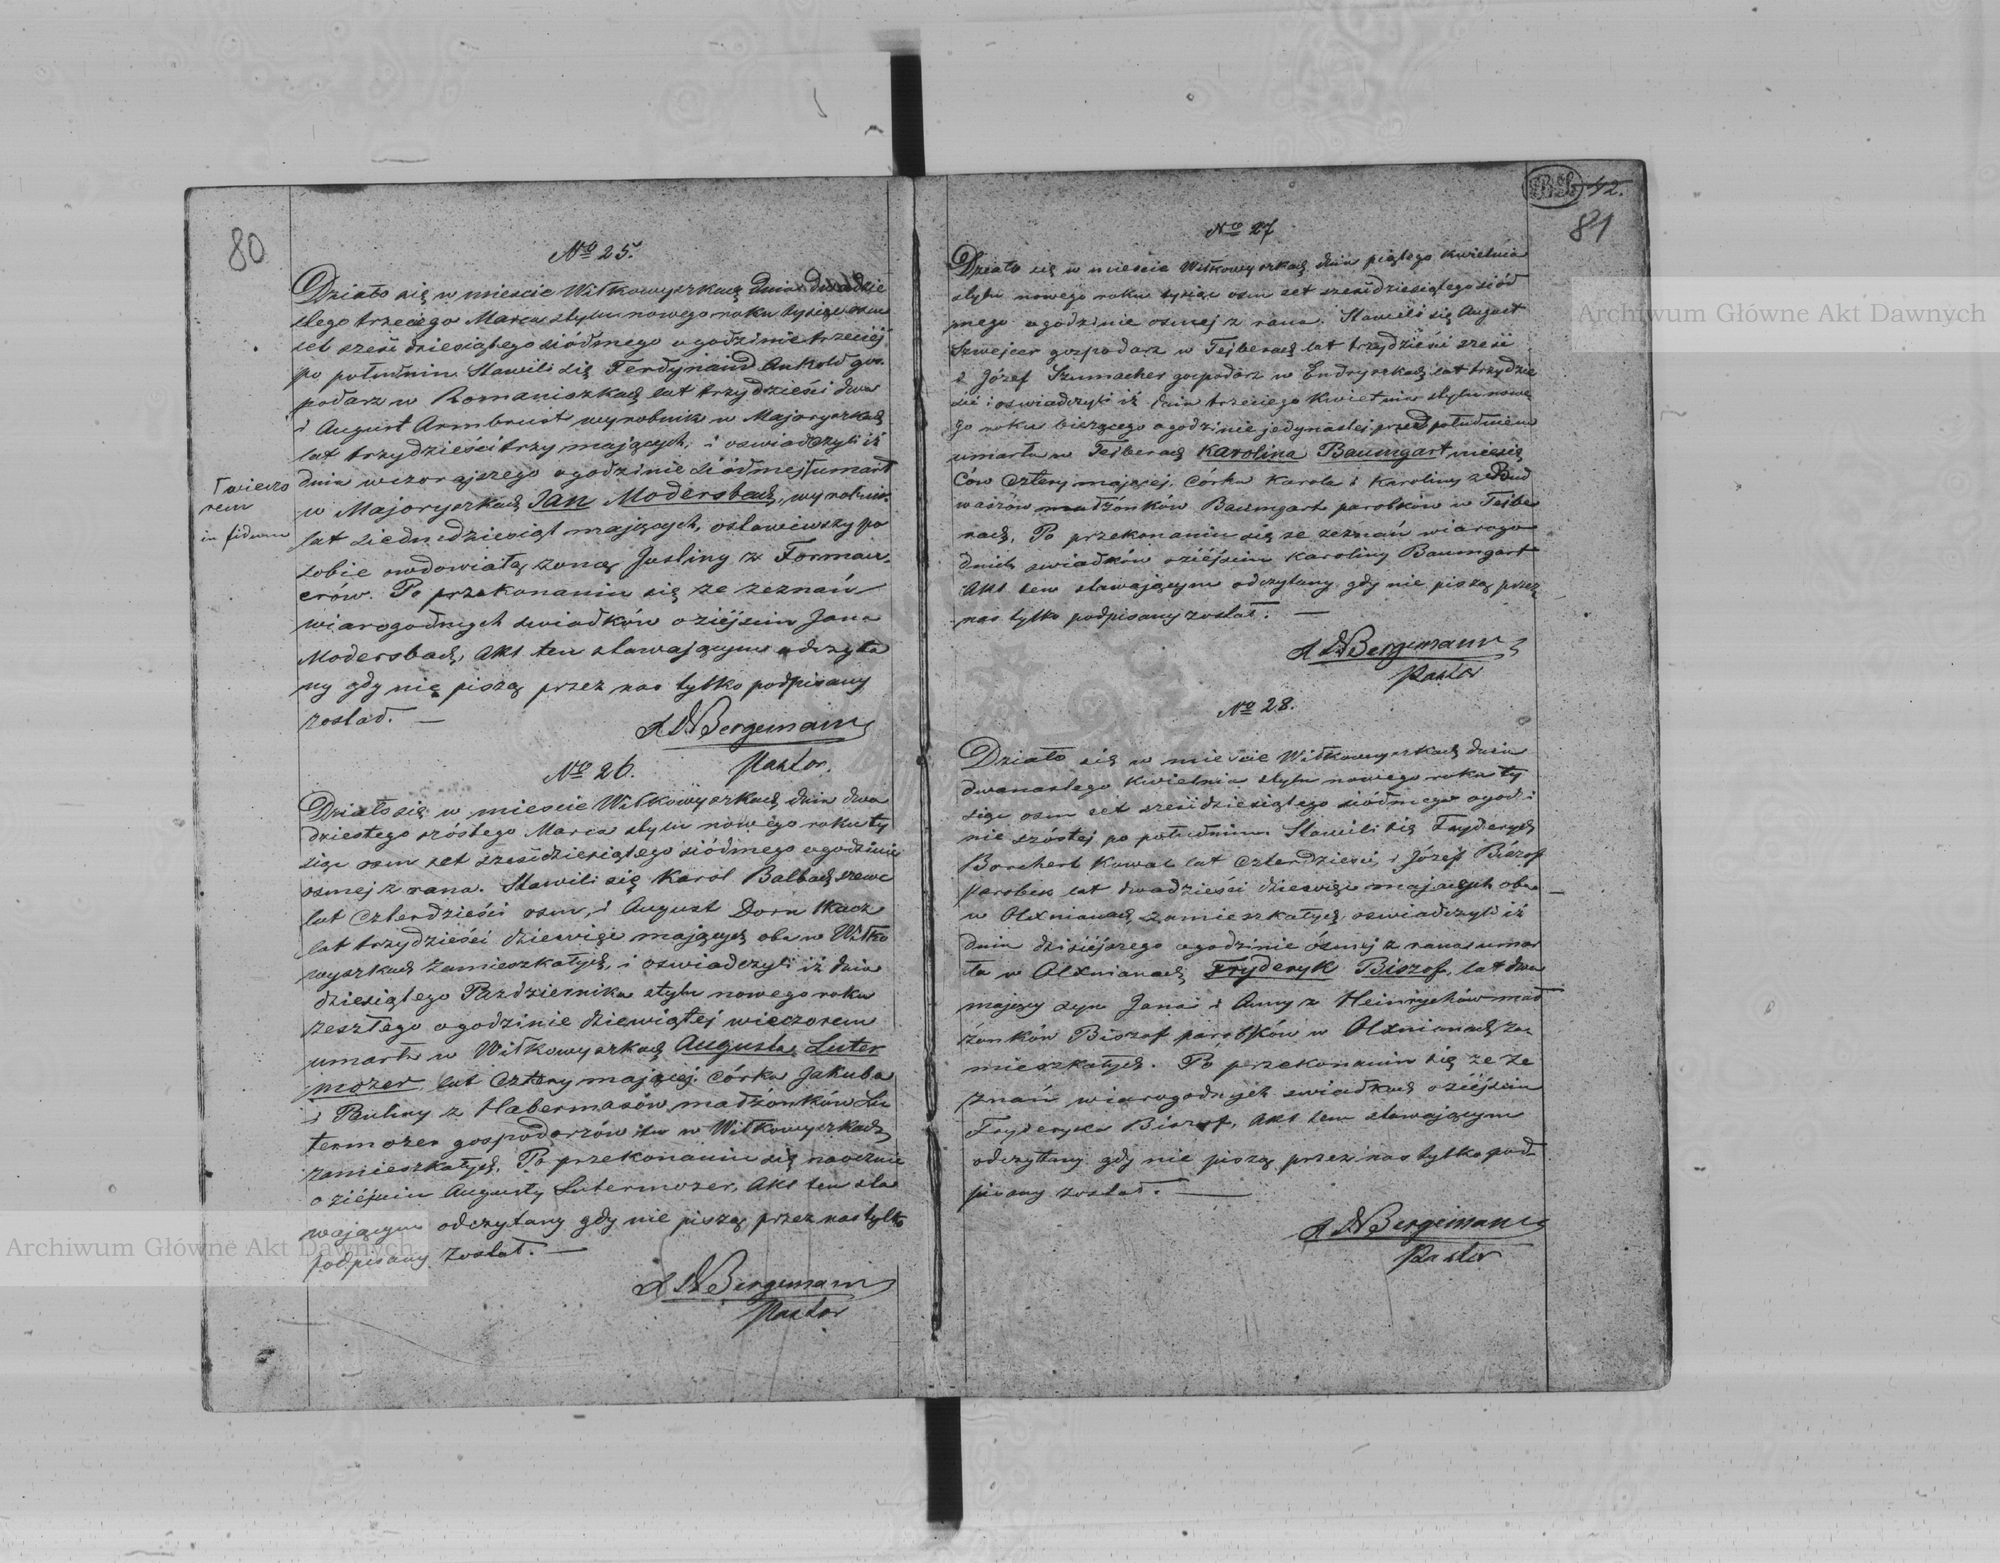 80
No 25.
Działo się w mieście Wiłkowyszkach dnia dwudzie
stego trzeciego Marca stylu nowego roku tysiąc osm
set sześćdziesiątego siódmego o godzinie trzeciej
po południu. Stawili się Ferdynand Ankold gos
podarz w Romaniszkach lat trzydzieści dwa
i August Armbrust wyrobnik w Majoryszkach
lat trzydzieści trzy mających, i oświadczyli iż
dnia wczorajszego o godzinie siódmej umarł
wieczo
rem
in fidem
w Majoryszkach Jan Modersbach, wyrobnik
lat siedmdziesiąt mających, ostawiwszy po
sobie owdowiałą żonę Justiny z Forman
erów. Po przekonaniu się ze zeznań
wiarogodnych świadków o ziéjsciu Jana
Modersbach, Akt ten stawającym odczyta
ny gdy nie piszą przez nas tylko podpisany
został. —
Bergemann
Pastor.
No 26.
Działo się w mieście Wiłkowyszkach dnia dwu
dziestego szóstego Marca stylu nowego roku ty
siąc osm set sześćdziesiątego siódmego o godzinie
osmej z rana. Stawili się Karol Balbach szewc
lat czterdzieści osm, i August Dorn tkacz
lat trzydzieści dziewięć mających oba w Wiłko
wyszkach zamieszkałych, i oświadczyli iż dnia
dziesiątego Października stylu nowego roku
zeszłego o godzinie dziewiątej wieczorem
umarła w Wiłkowyszkach Augusta Luter
mozer lat cztery mającej. córka Jakuba
i Pauliny z Habermasów małżonków Lu
termozer gospodarzów tu w Wiłkowyszkach
zamieszkałych. Po przekonaniu się naocznie
o ziéjsciu Augusty Lutermozer, Akt ten sta
wającym odczytany gdy nie piszą przez nas tylko
podpisany został. —
Bergemann
Pastor
42.
81
No 27
Działo się w mieście Wiłkowyszkach dnia piątego Kwietnia
stylu nowego roku tysiąc osm set sześćdziesiątego siód
mego o godzinie osmej z rana. Stawili się August
Szwejcer gospodarz w Tejberach lat trzydzieści sześć
i Józef Szumacher gospodarz w Endryszkach lat trzydzie
ści i oświadczyli iż dnia trzeciego Kwietnia stylu nowe
go roku bieżącego o godzinie jedynastej przed południem
umarła w Tejberach Karolina Baumgart miesię
ców cztery mającej. córka Karola i Karoliny z Bud
waizów małżonków Baumgart parobków w Tejbe
rach, Po przekonaniu się ze zeznań wiarogo
dnich świadków o ziéjsciu Karoliny Baumgart
Akt ten stawającym odczytany gdy nie piszą przez
nas tylko podpisany został. —
Bergemann
Pastor
No 28.
Działo się w mieście Wiłkowyszkach dnia
dwunastego Kwietnia stylu nowego roku ty
siąc osm set sześćdziesiątego siódmego o godzi
nie szóstej po południu. Stawili się Fryderych
Borchert Kowal lat czterdzieści, i Józef Biszof
parobek lat dwadzieścia dziewięć mających oba
w Olxnianach zamieszkałych, oświadczyli iż
dnia dzisiéjszego o godzinie ósmej z rana umar
ła w Olxnianach Fryderyk Biszof, lat dwa
mający syn Jana i Anny z Heinrychów mał
żonków Biszof parobków w Olxnianach za
mieszkałych. Po przekonaniu się ze ze
znań wiarogodnych świadkach o ziéjsciu
Fryderyka Biszof, Akt ten stawającym
odczytany gdy nie piszą przez nas tylko pod
pisany został. —
Bergemann
Pastor
Archiwum Główne Akt Dawnych
Archiwum Główne Akt Dawnych